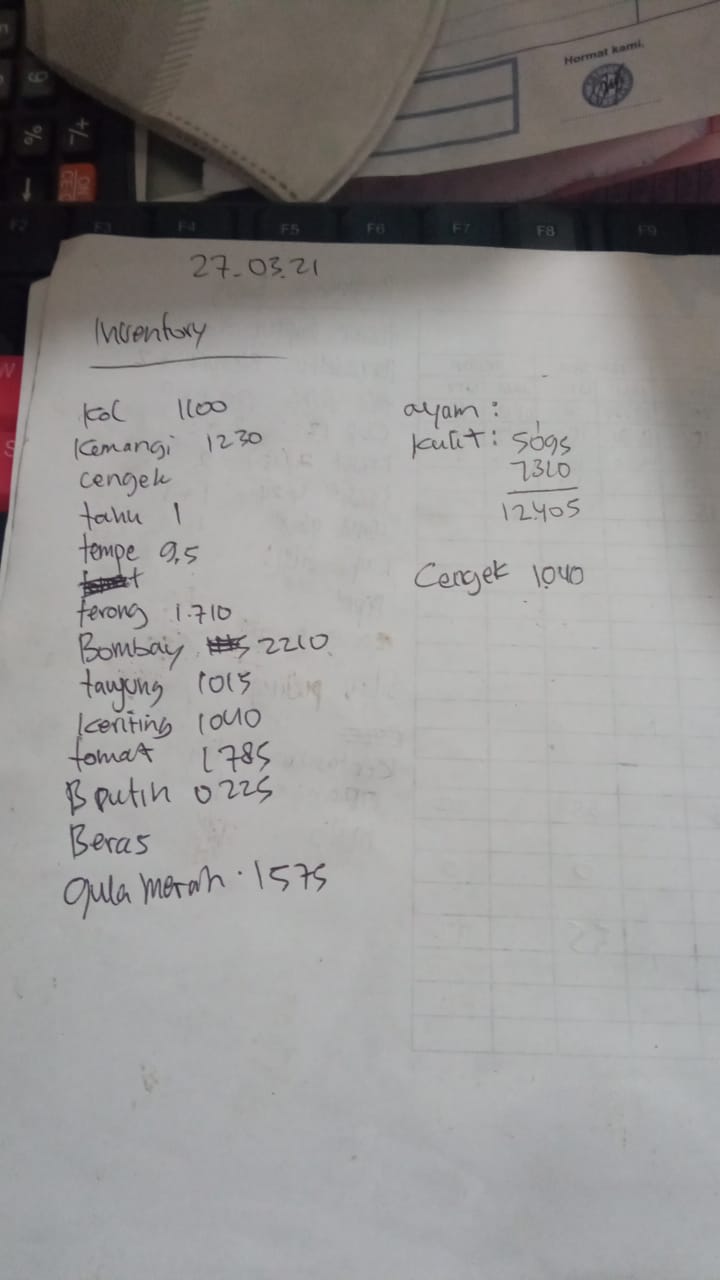 Hormat kami,
%
+/-
F2 F3 F4 F5 F6 F7 F8 F9
W
S
27-03.21
Inventory
Kol 1100
Kemangi 1230
cengek
tahu 1
tempe 9,5
terong 1.710
Bombay 2210
tanjung 1015
keriting 1040
tomat 1785
B putih 0225
Beras
gula merah. 1575
ayam :
kulit : 5095
7310
12.405
Cengek 1.040